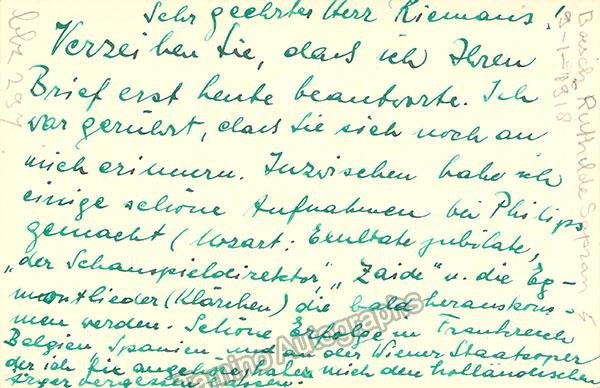 Sehr geehrter Herr Riemans!
Verzeihen Sie, dass ich Ihren
Brief erst heute beantworte. Ich
war gerührt, dass Sie sich noch an
mich erinnern. Inzwischen habe ich
einige schöne Aufnahmen bei Philips
gemacht (Mozart: Exultate jubilate,
„der Schauspieldirektor", „Zaide" u. die Eg-
montlieder (Klärchen) die bald herauskom-
men werden. Schöne Erfolge in Frankreich
Belgien Spanien und an der Wiener Staatsoper
der ich angehöre, haben mich den holländischen
Boesch Ruthilde Sopran
9-1-1918
Tamino Autographs